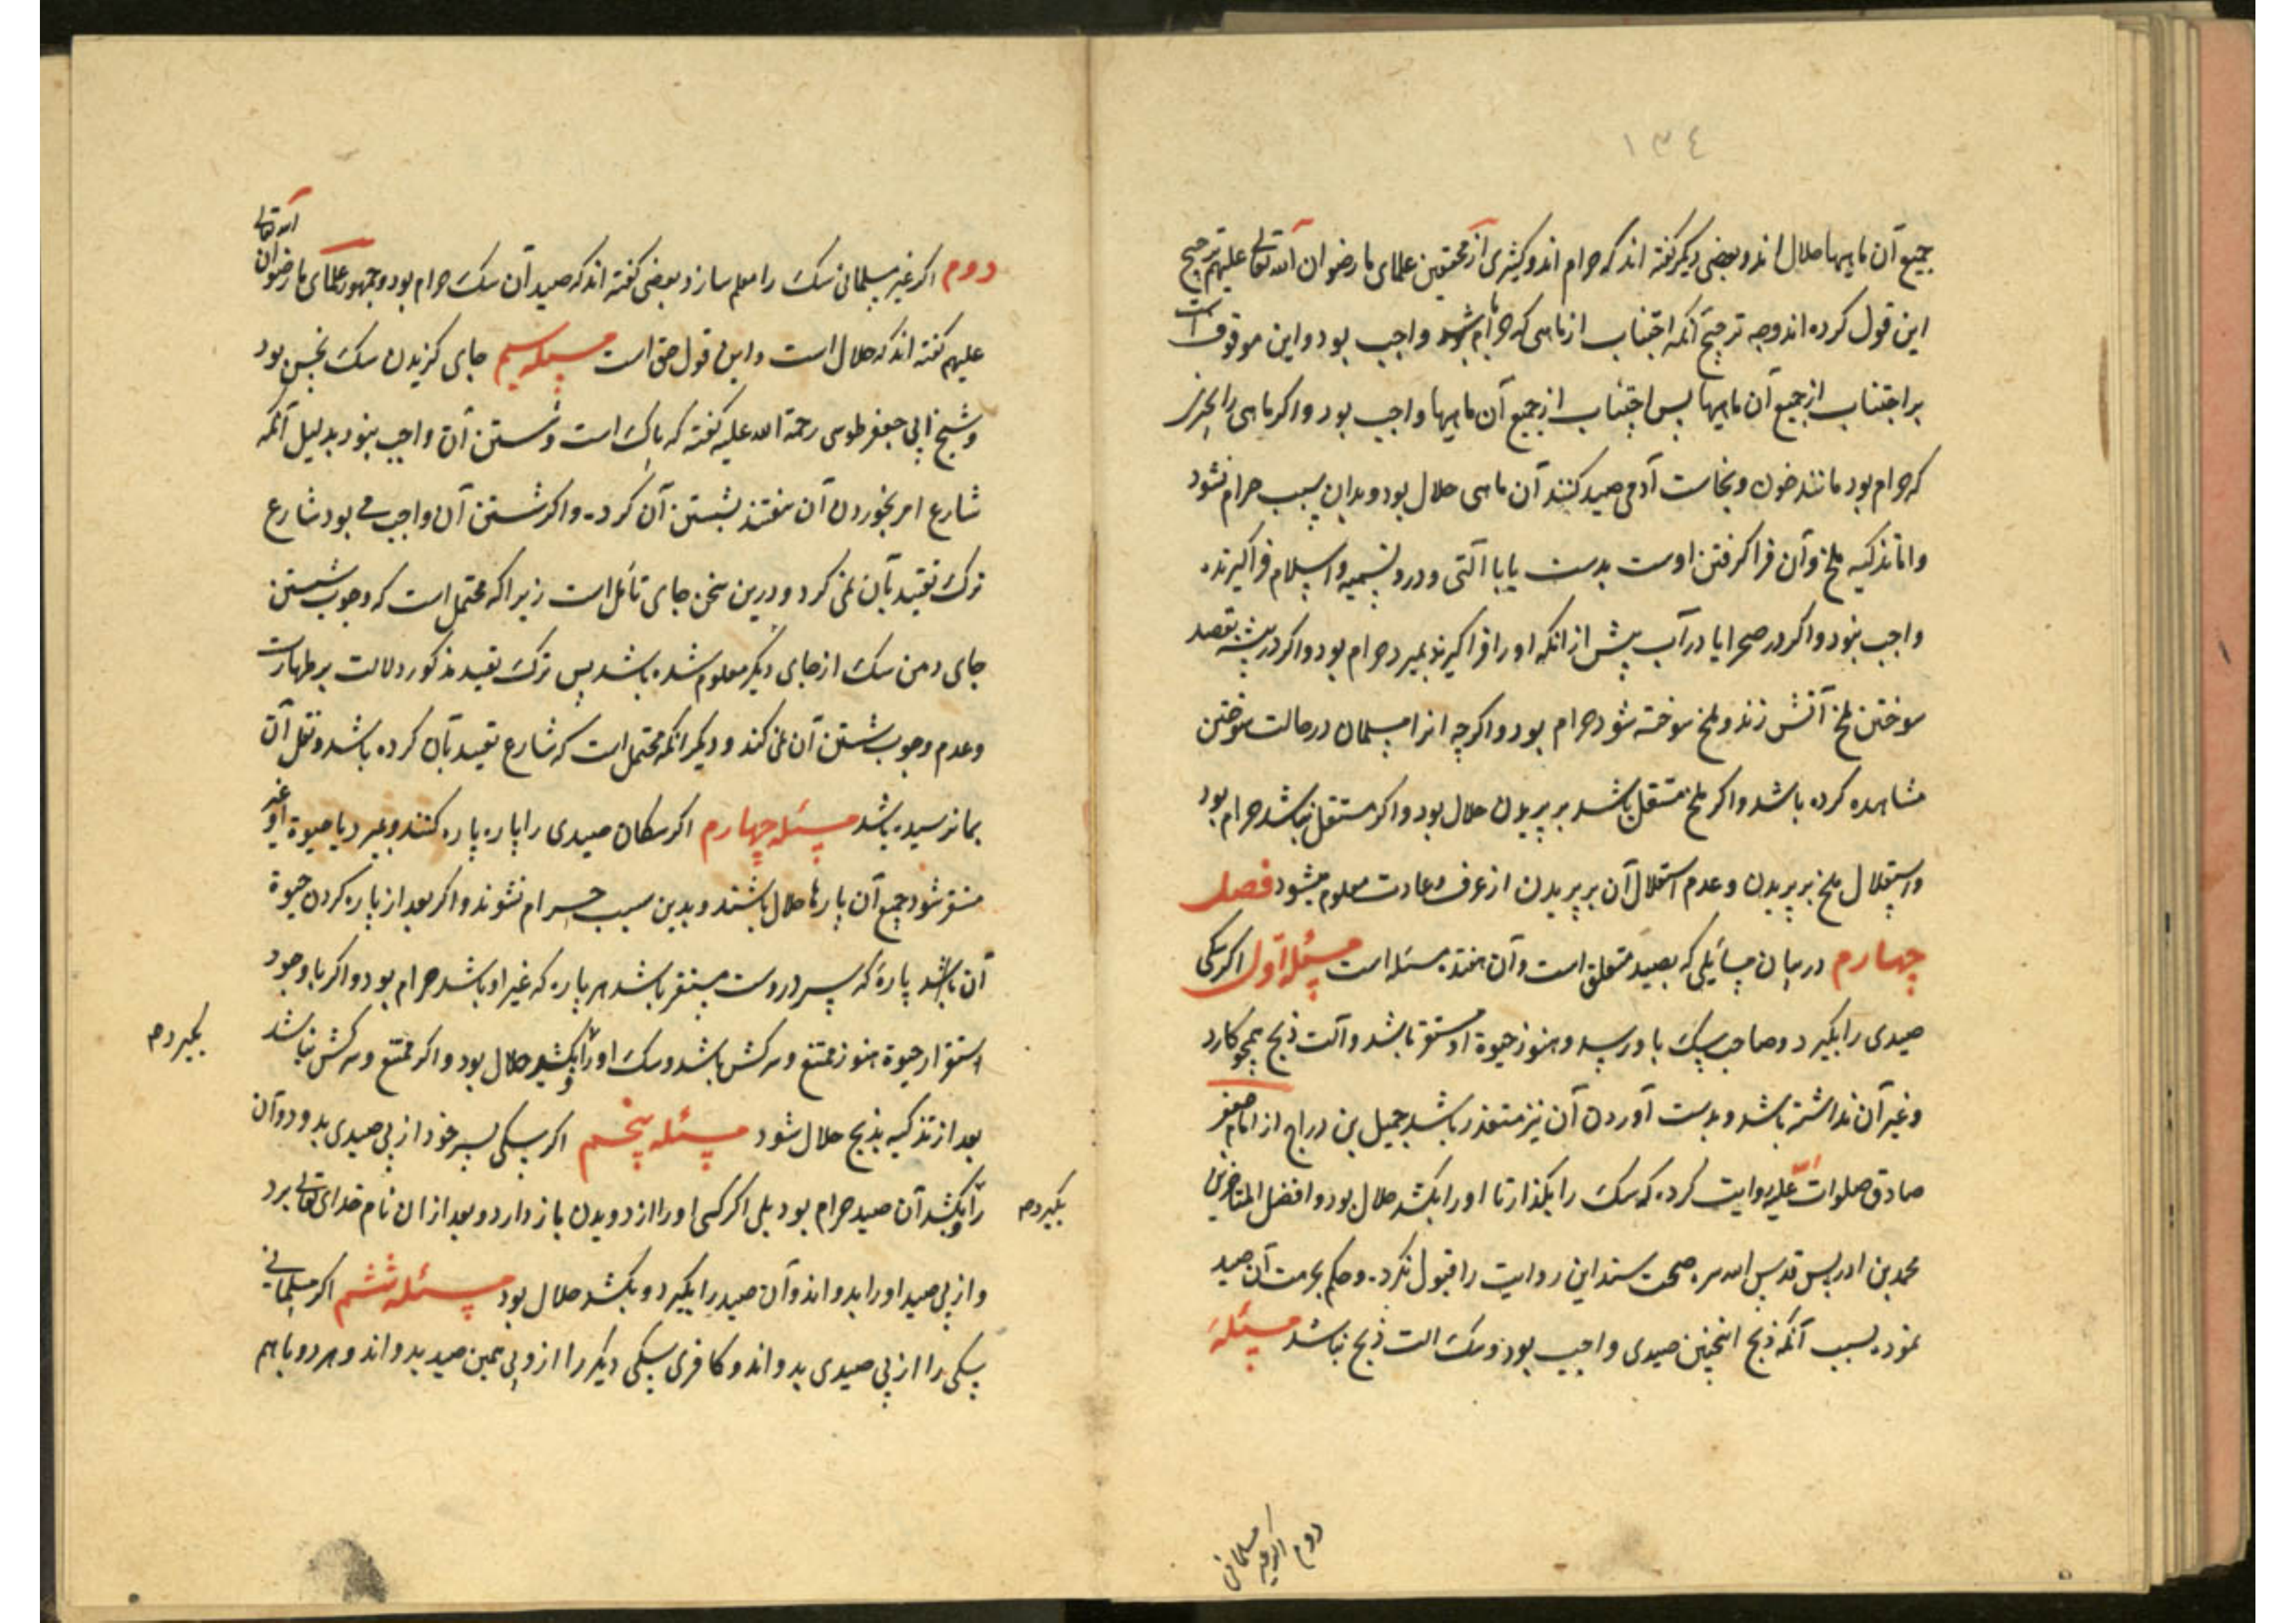 ١٣٤
جمیع آن ماهیها حلال اند و بعضی دیکر کفته اند که حرام اند و کثیری از محققین علمای ما رضوان الله تعالی علیهم ترجیح
این قول کرده اند و وجه ترجیح آنکه اجتناب از ماهی که حرام باشد واجب بود و این موقوفست
بر اجتناب از جمیع آن ماهیها پس اجتناب از جمیع آن ماهیها واجب بود و اکر ماهی را بچیزی
که حرام بود مانند خون و نجاست آدمی صید کنند آن ماهی حلال بود و بدان سبب حرام نشود
و اما تذکیه ملخ و آن فرا کرفتن اوست بدست یا با آلتی و درو تسمیه و اسلام فرا کیرنده
واجب نبود و اکر در صحرا یا در آب پیش از آنکه او را فرا کیرند بمیرد حرام بود و اکر در بیشه بقصد
سوختن ملخ آتش زند و ملخ سوخته شود حرام بود و اکرچه انرا مسلمان در حالت سوختن
مشاهده کرده باشد و اکر ملخ مستقل باشد بر پریدن حلال بود و اکر مستقل نباشد حرام بود
و استقلال ملخ بر پریدن و عدم استقلال آن بر پریدن از عرف و عادت معلوم میشود فصل
چهارم در بیان مسایلی که بصید متعلق است و آن هفتده مسئله است مسئله اول اکر سکی
صیدی را بکیرد و صاحب سک باو رسد و هنوز حیوة او مستقر باشد و آلت ذبح همچو کارد
و غیر آن نداشته باشد و بدست آوردن آن نیز متعذر باشد جمیل بن دراج از امام جعفر
صادق صلوات علیه روایت کرده که سک را بکذارد تا او را بکشد حلال بود و افضل المتاخرین
محمد بن ادریس قدس الله سره صحت سند این روایت را قبول نکرده و حکم بحرمت آن صید
نموده بسبب آنکه ذبح اینچنین صیدی واجب بود و سک الت ذبح نباشد مسئله
دوم اکر غیر مسلمانی
دوم اکر غیر مسلمانی سک را معلم سازد بعضی کفته اند که صید آن سک حرام بود و جمهور علمای ما رضوان الله تعالی
علیهم کفته اند که حلال است و این قول حق است مسئله سیم جای کزیدن سک نجس بود
و شیخ ابی جعفر طوسی رحمة الله علیه کفته که پاک است و شستن آن واجب نبود بدلیل آنکه
شارع امر بخوردن آن بشستن آن کرد و اکر شستن آن واجب می بود شارع
ترک تقیید بآن نمی کرد و درین سخن جای تأمل است زیرا که محتمل است که وجوب شستن
جای دهن سک از جای دیکر معلوم شده باشد پس ترک تقیید مذکور دلالت بر طهارت
و عدم وجوب شستن آن نمی کند و دیکر انکه محتمل است که شارع تقیید بآن کرده باشد و نقل آن
بما نرسیده باشد مسئله چهارم اکر سکان صیدی را پاره پاره کنند و بمیرد یا حیوة او غیر
مستقر شود جمیع آن پارها حلال باشند و بدین سبب حرام نشوند و اکر بعد از پاره کردن حیوة
آن باشد پارهٔ که سر دروست مستقر باشد هر پاره که غیر او باشد حرام بود و اکر با وجود
استقرار حیوة هنوز ممتنع و سرکش باشد و سک او را بکشد حلال بود و اکر ممتنع و سرکش نباشد
بکیرد صح
بعد از تذکیه بذبح حلال شود مسئله پنجم اکر سکی بسر خود از پی صیدی بدود و آن
را بکشد آن صید حرام بود بلی اکر کسی او را از دویدن باز دارد و بعد از ان نام خدای تعالی برد
بکیرد صح
و از پی صید او را بدواند و آن صید را بکیرد و بکشد حلال بود مسئله ششم اکر مسلمانی
سکی را از پی صیدی بدواند و کافری سکی دیکر را از پی همین صید بدواند و هر دو باهم